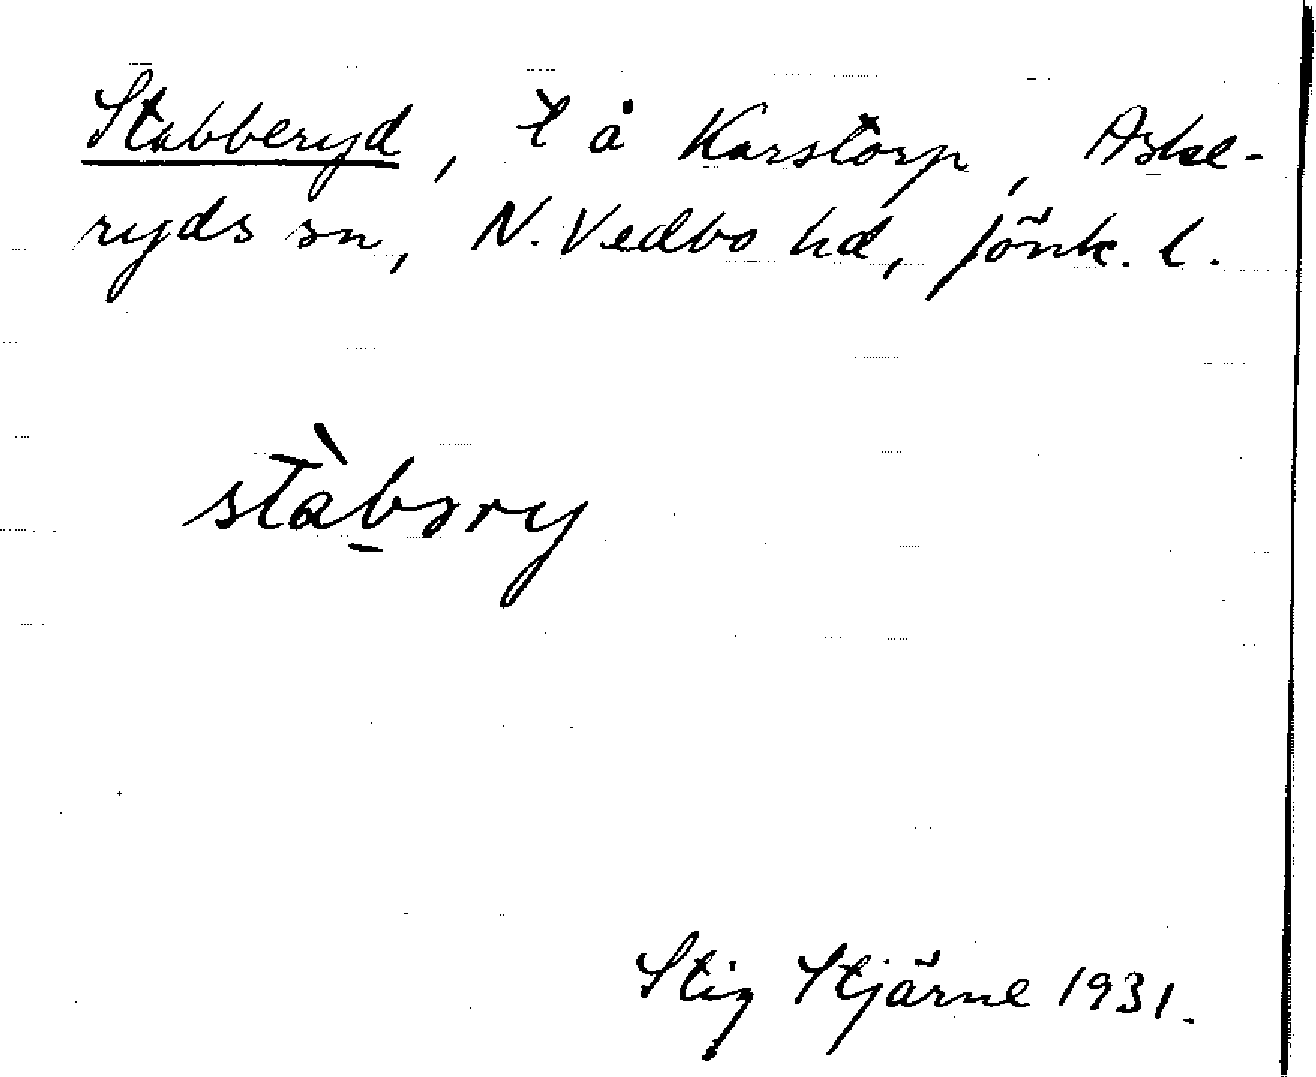 Stabberyd, t å Karstorp, Aske-
ryds sn, N. Vedbo hd, Jönk. l.
stàḇəry
Stig Stjärne 1931.